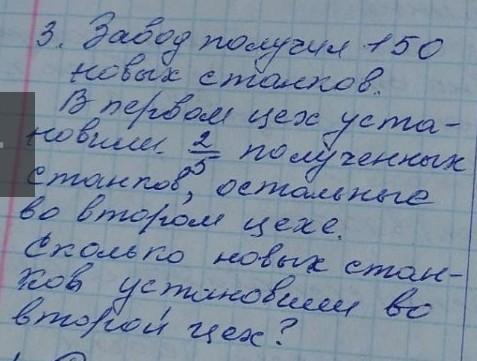 3. Завод получил 150
новых станков.
В первом цех уста-
новили 2/5 полученных
станков, остальные
во втором цехе.
Сколько новых стан-
ков установили во
второй цех?